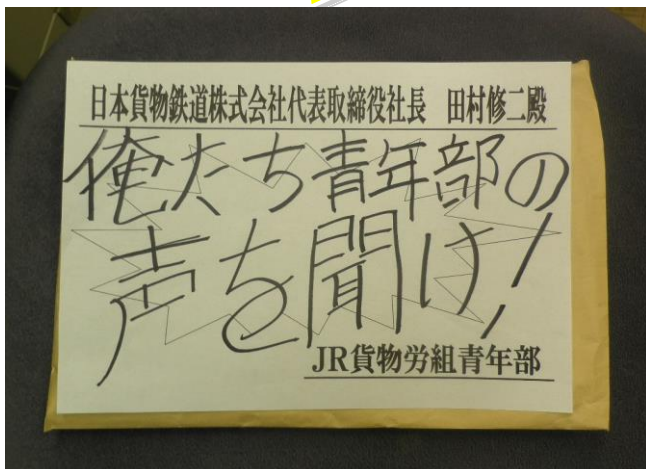 日本貨物鉄道株式会社代表取締役社長　田村修二殿
俺たち青年部の
声を聞け!
JR貨物労組青年部